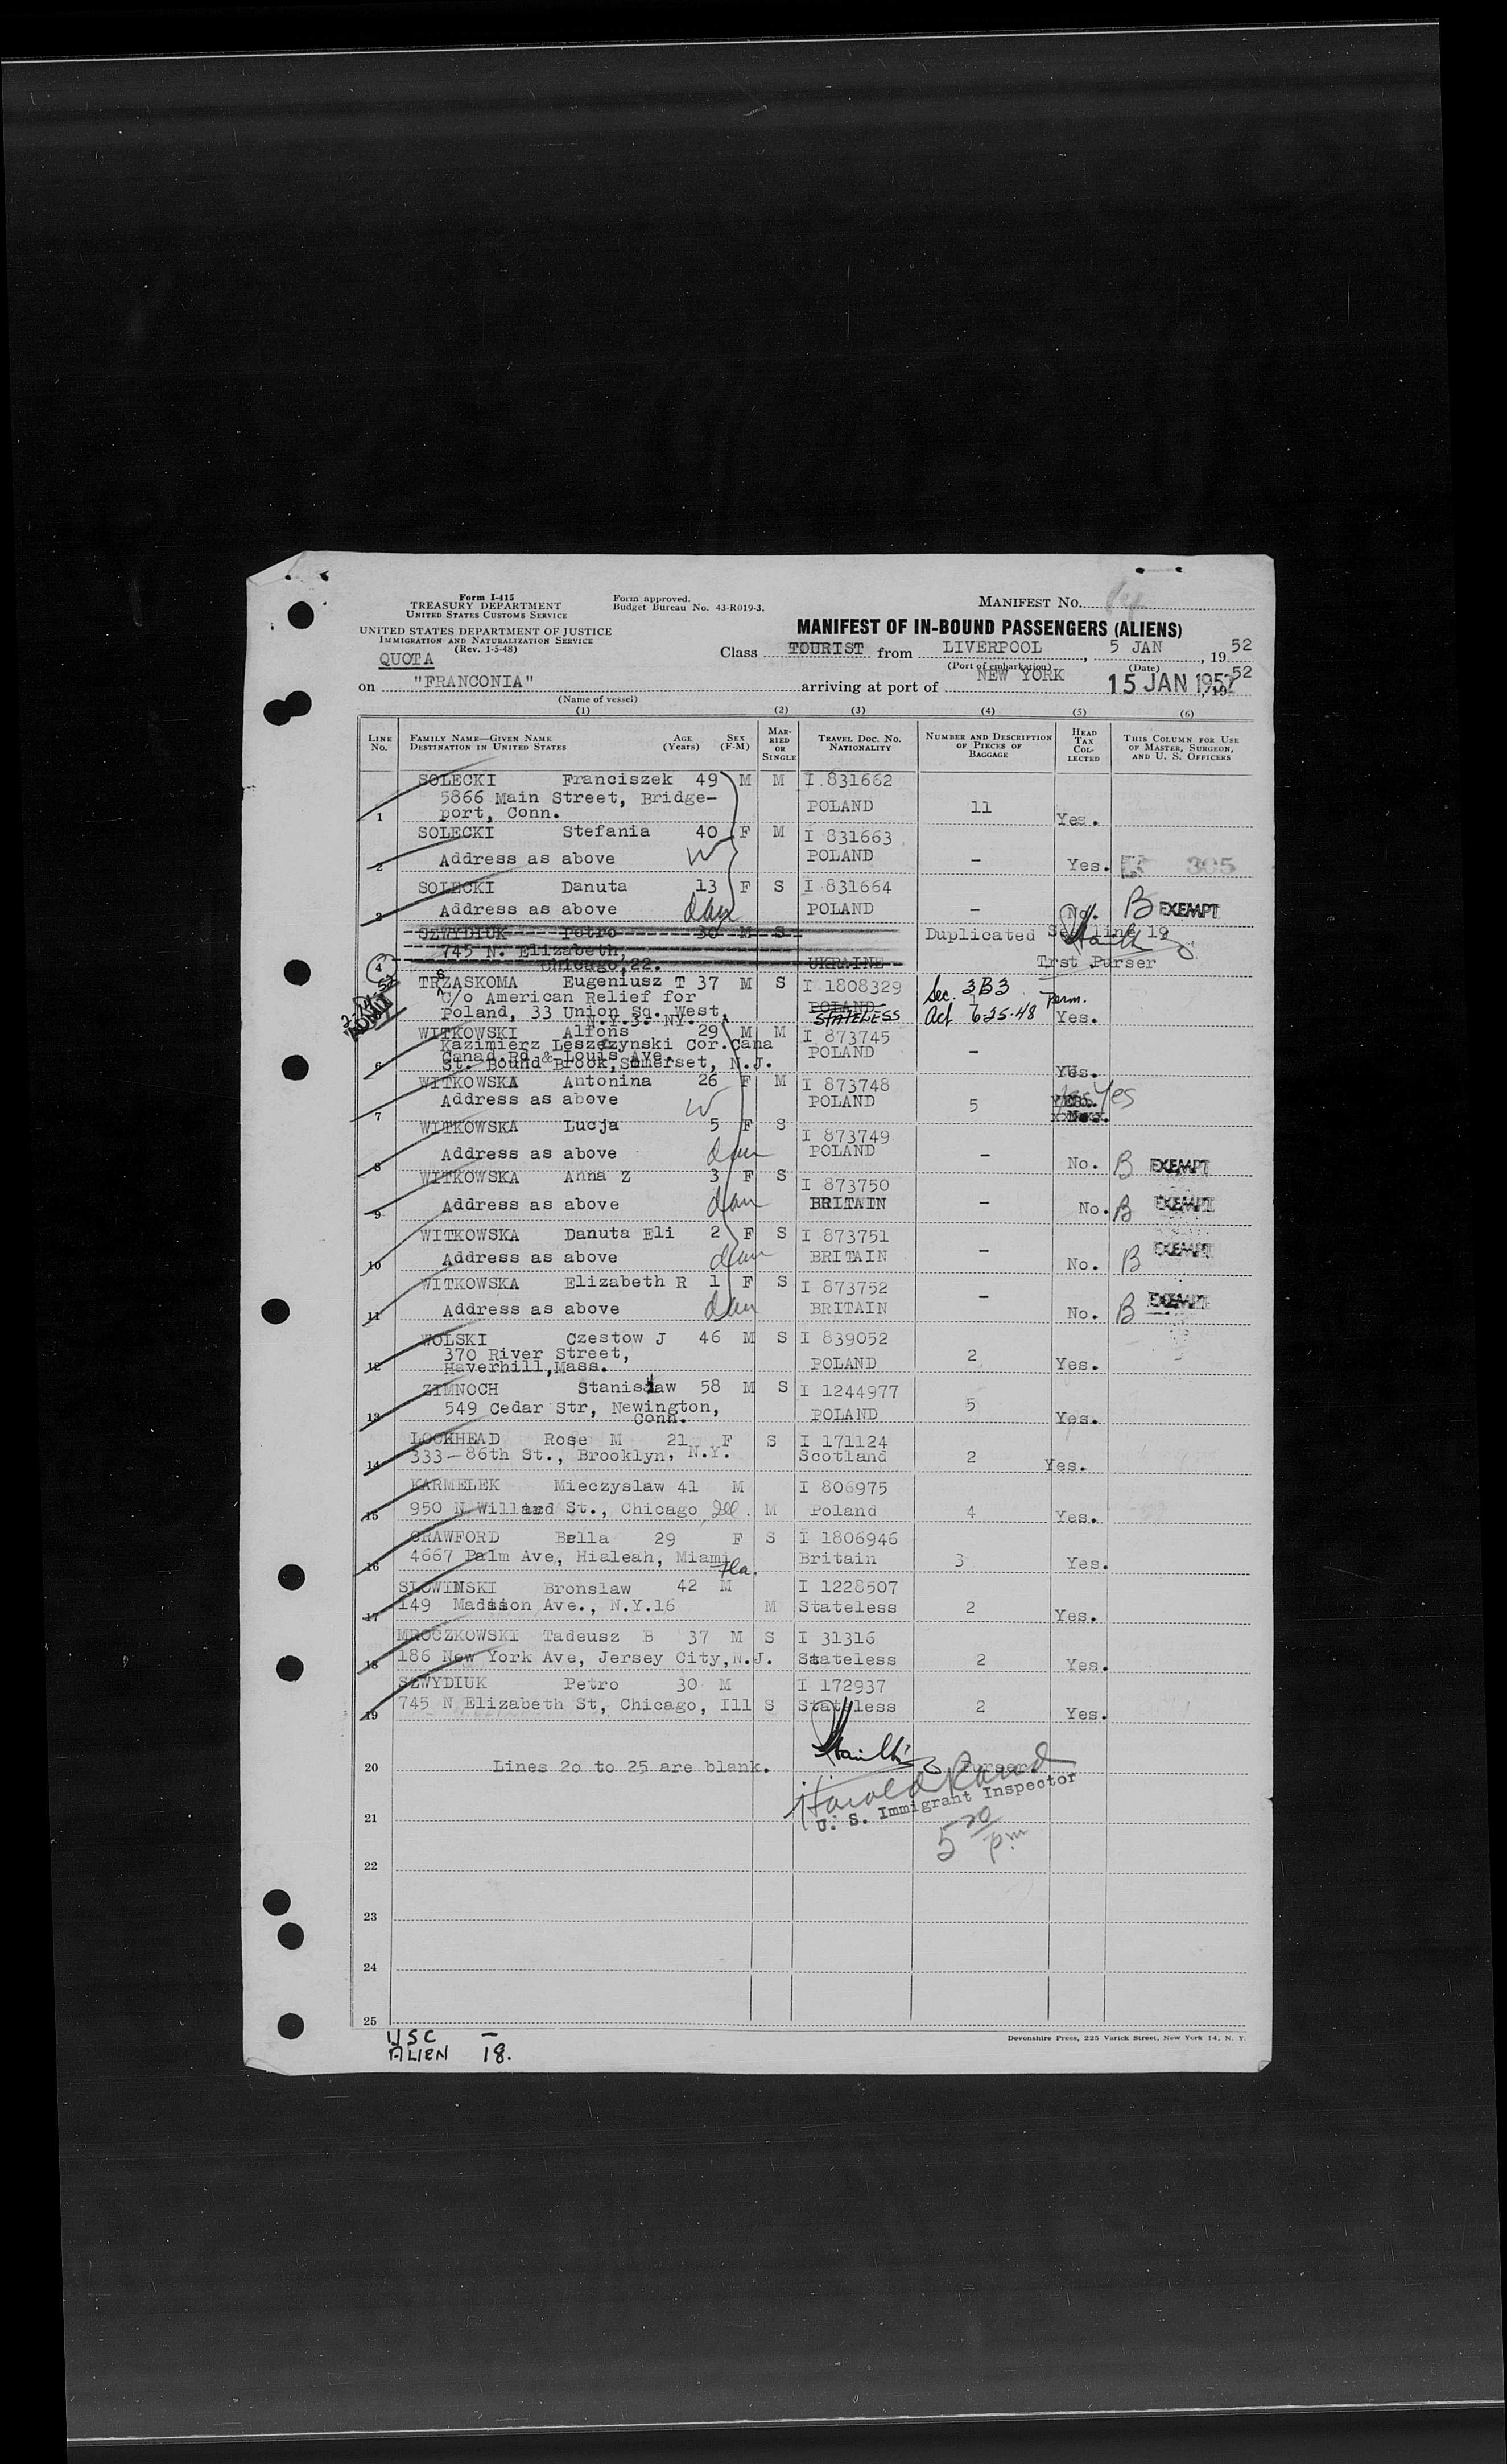 Form I-415
TREASURY DEPARTMENT
UNITED STATES CUSTOMS SERVICE
Form approved.
Budget Bureau No. 43-R019-3.
MANIFEST No.
UNITED STATES DEPARTMENT OF JUSTICE
IMMIGRATION AND NATURALIZATION SERVICE
(Rev. 1-5-48)
MANIFEST OF IN-BOUND PASSENGERS (ALIENS)
QUOTA
Class TOURIST from LIVERPOOL, 5 JAN, 1952
(Port of embarkation) (Date)
on "FRANCONIA" arriving at port of NEW YORK 15 JAN 1952, 1952
(Name of vessel)
(1) (2) (3) (4) (5) (6)
LINE No.
FAMILY NAME—GIVEN NAME
DESTINATION IN UNITED STATES
AGE (Years)
SEX (F-M)
MARRIED OR SINGLE
TRAVEL DOC. No. NATIONALITY
NUMBER AND DESCRIPTION OF PIECES OF BAGGAGE
HEAD TAX COLLECTED
THIS COLUMN FOR USE OF MASTER, SURGEON, AND U. S. OFFICERS
SOLECKI Franciszek 49 M M I 831662
5866 Main Street, Bridge- POLAND 11
1 port, Conn. Yes.
SOLECKI Stefania 40 F M I 831663
2 Address as above W POLAND - Yes. 305
SOLECKI Danuta 13 F S I 831664
3 Address as above dau POLAND - No. B EXEMPT
SZWYDIUK Petro 30 M S Duplicated See line 19
745 N. Elizabeth,
4 Chicago, 22. UKRAINE Trst Purser
TRZASKOMA Eugeniusz T 37 M S I 1808329 Sec. 3B3
S
C/o American Relief for POLAND Perm.
Poland, 33 Union Sq. West, STATELESS Act 6-25-48 Yes.
N.Y.3. NY.
ADMIT
WITKOWSKI Alfons 29 M M I 873745
Kazimierz Leszczynski Cor.Cana
Canad.Rd & Louis Ave. POLAND -
6 St. Bound Brook, Somerset, N.J. Yes.
WITKOWSKA Antonina 26 F M I 873748
7 Address as above W POLAND 5 Yes
WITKOWSKA Lucja 5 F S I 873749
8 Address as above dau POLAND - No. B EXEMPT
WITKOWSKA Anna Z 3 F S I 873750
9 Address as above dau BRITAIN - No. B EXEMPT
WITKOWSKA Danuta Eli 2 F S I 873751
10 Address as above dau BRITAIN - No. B EXEMPT
WITKOWSKA Elizabeth R 1 F S I 873752
11 Address as above dau BRITAIN - No. B EXEMPT
WOLSKI Czestow J 46 M S I 839052
370 River Street,
12 Haverhill, Mass. POLAND 2 Yes.
ZIMNOCH Stanislaw 58 M S I 1244977
549 Cedar Str, Newington,
13 Conn. POLAND 5 Yes.
LOCKHEAD Rose M 21 F S I 171124
14 333-86th St., Brooklyn, N.Y. Scotland 2 Yes.
KARMELEK Mieczyslaw 41 M I 806975
15 950 N Willard St., Chicago, Ill. M Poland 4 Yes.
CRAWFORD Bella 29 F S I 1806946
16 4667 Palm Ave, Hialeah, Miami Fla. Britain 3 Yes.
SLOWINSKI Bronslaw 42 M I 1228507
17 149 Madison Ave., N.Y.16 M Stateless 2 Yes.
MROCZKOWSKI Tadeusz B 37 M S I 31316
18 186 New York Ave, Jersey City, N.J. Stateless 2 Yes.
SZWYDIUK Petro 30 M I 172937
19 745 N Elizabeth St, Chicago, Ill S Stateless 2 Yes.
20 Lines 2o to 25 are blank. Purser
Harold Rand
21 U. S. Immigrant Inspector
5 20 pm
22
23
24
25
USC -
ALIEN 18.
Devonshire Press, 225 Varick Street, New York 14, N. Y.